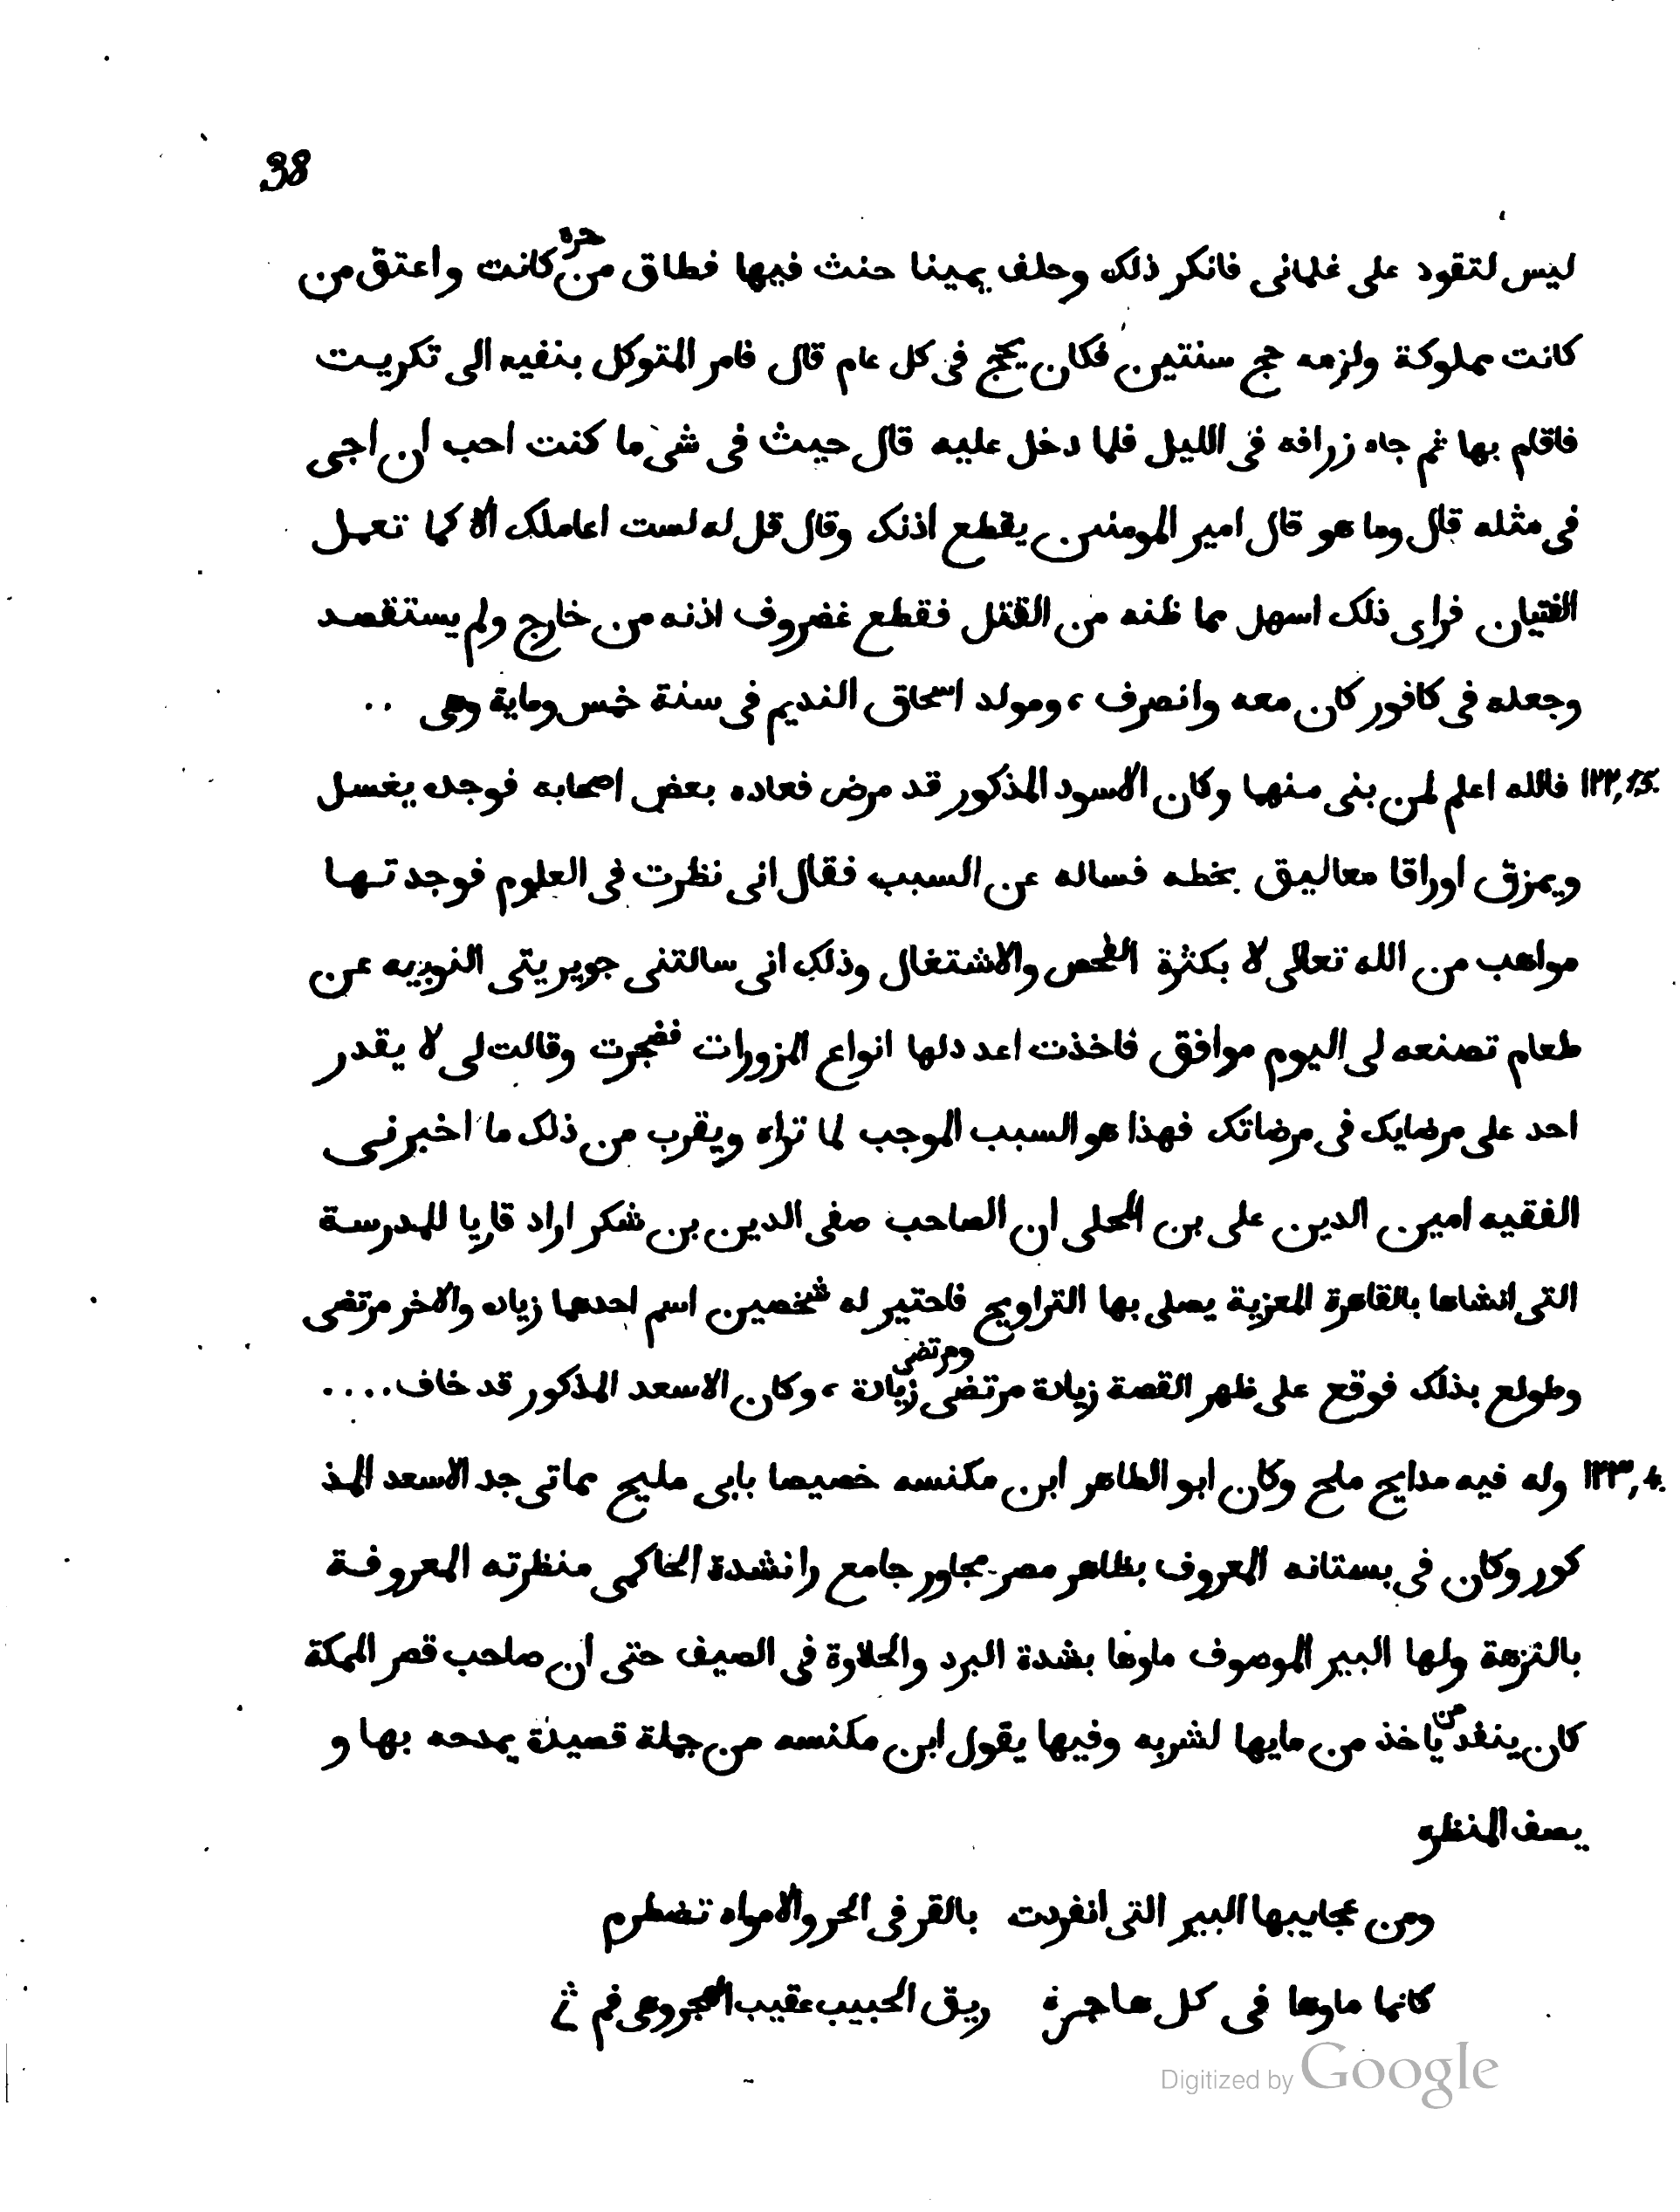 38
ليس لتقود على غلمانى فانكر ذلك وحلف يمينا حنث فيها فطاق من حره كانت واعتق من
كانت مملوكة ولزمه حج سنتين فكان يحج فى كل عام قال فامر المتوكل بنفيه الى تكريت
فاقام بها ثم جاه زرافه فى الليل فلما دخل عليه قال حيث فى شى ما كنت احب ان اجى
فى مثله قال وما هو قال امير المومنين يقطع اذنك وقال قل له لست اعاملك الا كما تعمل
الفتيان فراى ذلك اسهل مما ظنه من القتل فقطع غضروف اذنه من خارج ولم يستقصد
وجعله فى كافور كان معه وانصرف ، ومولد اسحاق النديم فى سنة خمس وماية وهى ..
١٢٢,15. فالله اعلم لمن بنى منها وكان الاسود المذكور قد مرض فعاده بعض اصحابه فوجده يغسل
ويمزق اوراقا معاليق بخطه فساله عن السبب فقال انى نظرت فى العلوم فوجدتها
مواهب من الله تعالى لا بكثرة الفحص والاشتغال وذلك انى سالتنى جويريتى النوبيه عن
طعام تصنعه لى اليوم موافق فاخذت اعدد لها انواع المزورات ففجرت وقالت لى لا يقدر
احد على مرضايك فى مرضاتك فهذا هو السبب الموجب لما تراه ويقرب من ذلك ما اخبرنى
الفقيه امين الدين على بن المحلى ان الصاحب صفى الدين بن شكر اراد قاريا للمدرسة
التى انشاها بالقاهرة المعزية يصلى بها التراويح فاحتير له شخصين اسم احدهما زياده والاخر مرتضى
وطولع بذلك فوقع على ظهر القصة زيادة مرتضى ومرتضى زيادة ، وكان الاسعد المذكور قد خاف ....
١٢٣,4. وله فيه مدايح ملح وكان ابو الطاهر ابن مكنسه خصيصا بابى مليح مماتى جد الاسعد المذ
كور وكان فى بستانه المعروف بظاهر مصر مجاور جامع رانشدة الحاكمى منظرته المعروفة
بالنزهة ولها البير الموصوف ماوها بشدة البرد والحلاوة فى الصيف حتى ان صاحب قصر المملكة
كان ينفد من ياخذ من مايها لشربه وفيها يقول ابن مكنسه من جملة قصيدة يمدحه بها و
يصف المنظره
ومن عجايبها البير التى انفردت بالقر فى الحر والامواه تضطرم
كانما ماوها فى كل هاجرة ريق الحبيب عقيب الهجر وهى فم
Digitized by Google